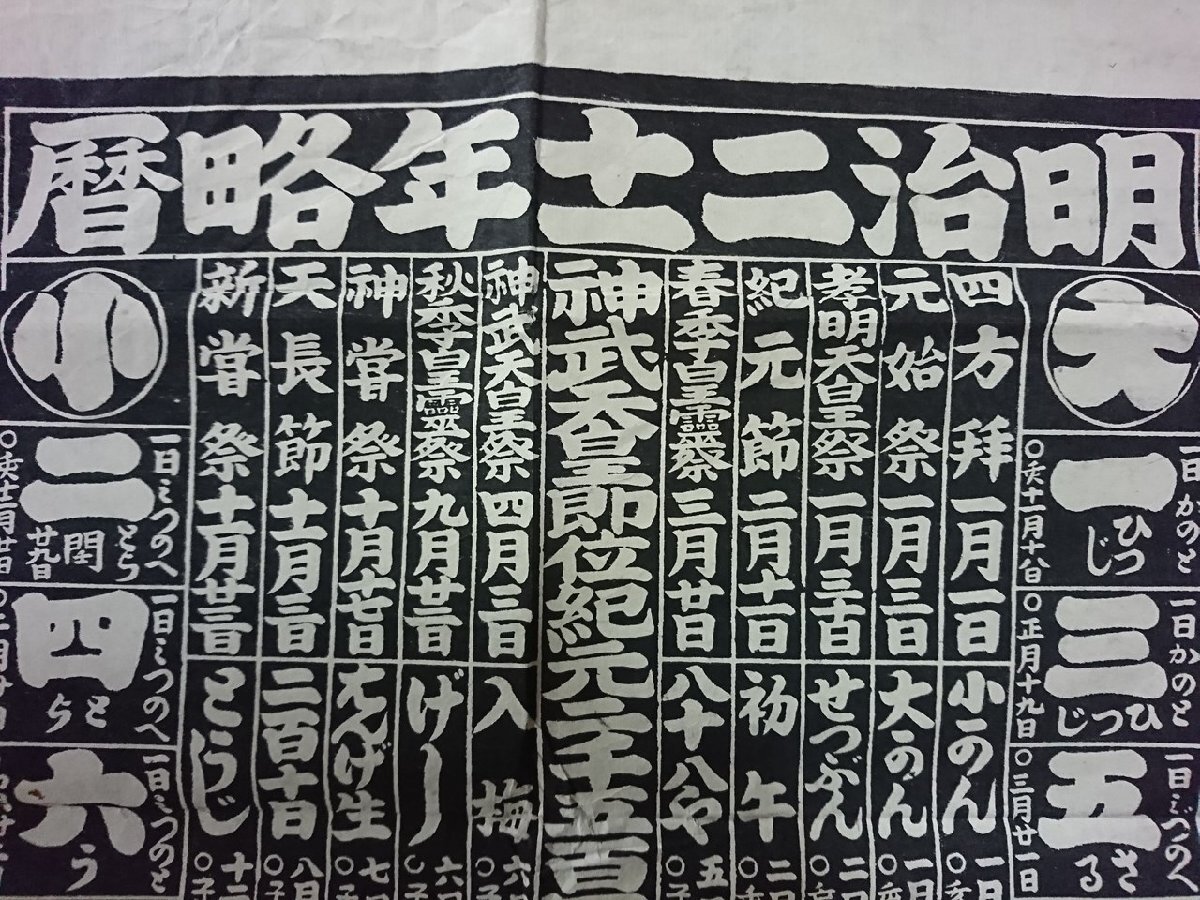 明治二十一年略暦
大
一日かのと
一
ひつじ
○亥十一月十八日
一日かのと
三
ひつじ
○正月十九日
一日ミづのへ
五
さる
○三月廿一日
四方拝 一月一日
元始祭 一月三日
孝明天皇祭 一月三十日
紀元節 二月十一日
春季皇靈祭 三月廿日
神武天皇即位紀元二千五百
神武天皇祭 四月三日
秋季皇靈祭 九月廿二日
神嘗祭 十月十七日
天長節 十一月三日
新嘗祭 十一月廿三日
小かん
大かん
せつぶん
初午
八十八や
入梅
げし
はんげ生
二百十日
とうじ
小
一日ミつのへ
二
とら
閏廿九日
一日ミつのへ
四
とら
一日ミつのと
六
う